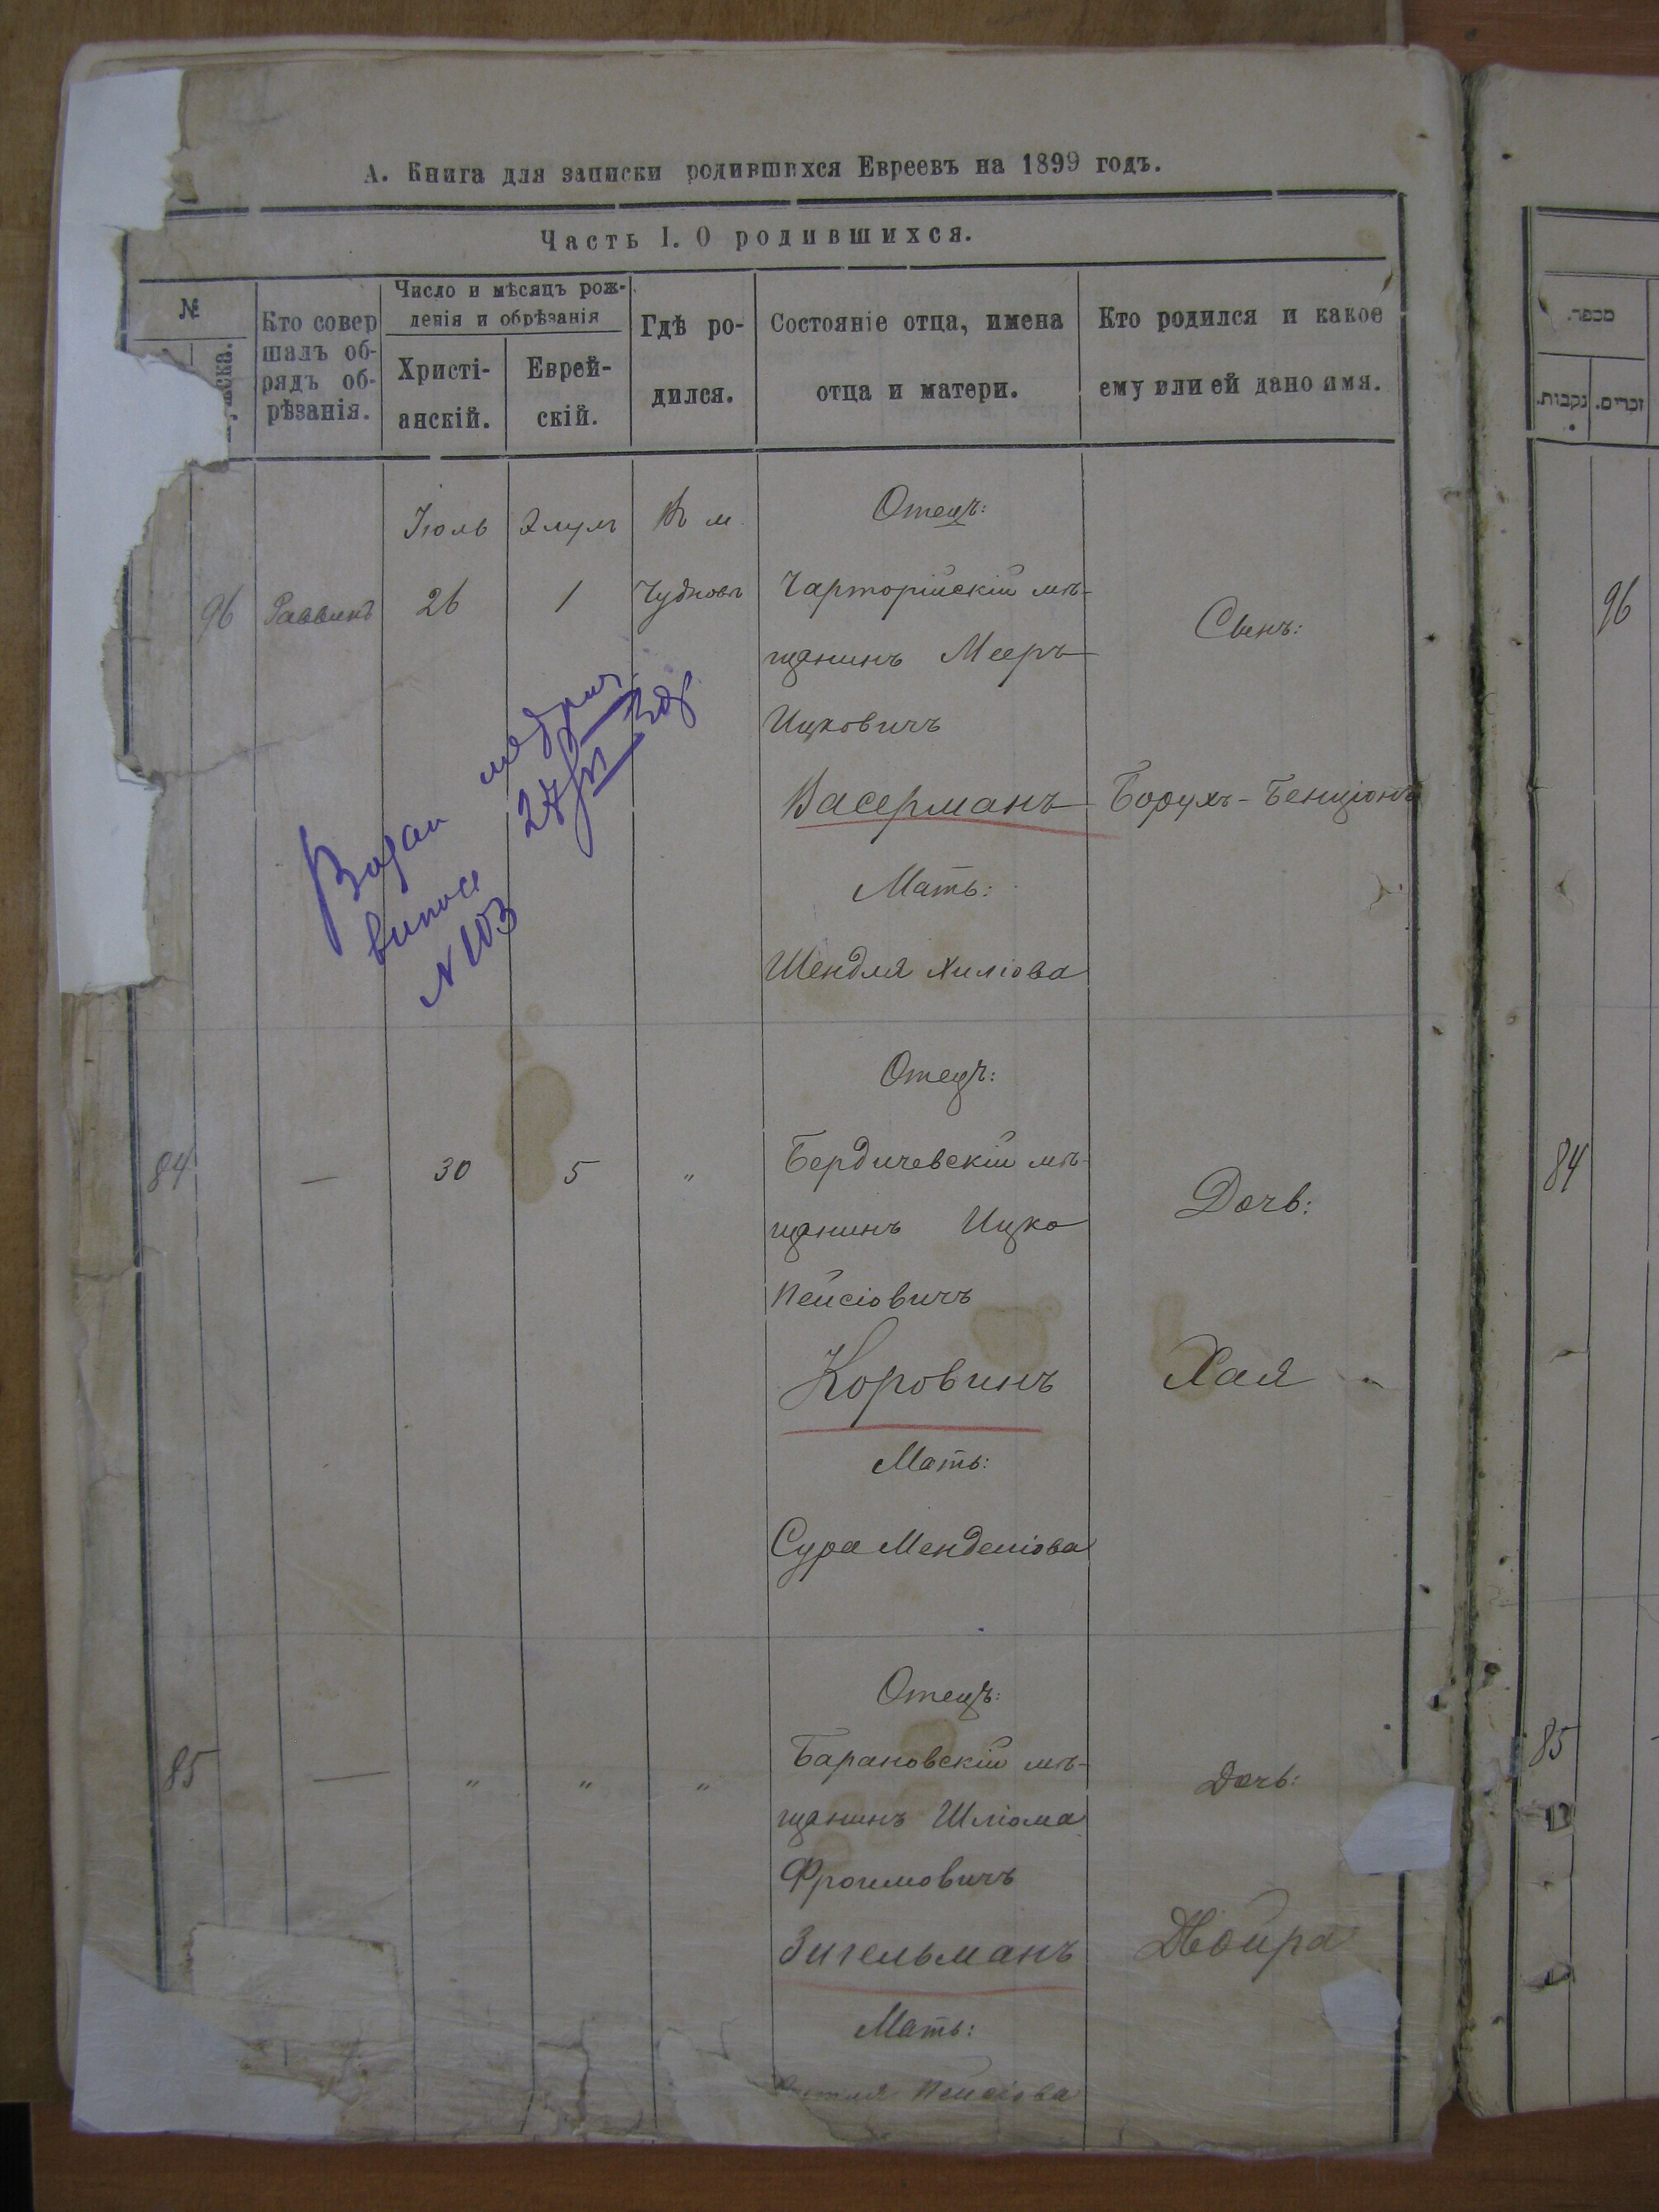 А. Книга для записки родившихся Евреевъ на 1899 годъ.
Часть I. О родившихся.
№
Кто совер
шалъ об-
рядъ об-
рѣзанія.
Число и мѣсяцъ рож-
денія и обрѣзанія
Христі-
анскій.
Еврей-
скій.
Гдѣ ро-
дился.
Состояніе отца, имена
отца и матери.
Кто родился и какое
ему или ей дано имя.
96
Раввинъ
Іюль
26
Элулъ
1
В м.
Чудновъ
Отецъ:
Чарторійскій мѣ-
щанинъ Мееръ
Ицковичъ
Васерманъ
Мать:
Шендля Хиліова
Сынъ:
Борухъ-Бенціонъ
N 103
84
—
30
5
"
Отецъ:
Бердичевскій мѣ-
щанинъ Ицко
Пейсіовичъ
Коровинъ
Мать:
Сура Менделіова
Дочь:
Хая
85
—
"
"
"
Отецъ:
Барановскій мѣ-
щанинъ Шліома
Фроимовичъ
Зигельманъ
Мать:
Пейсіова
Дочь:
Двойра
מספר.
נקבות.
זכרים.
96
84
85